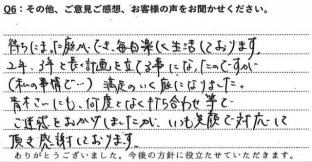 Q6：その他、ご意見ご感想、お客様の声をお聞かせください。
待ちにまった庭ができ、毎日楽しく生活しております。
2年、3年と長い計画を立てる事になったのですが
(私の事情で…) 満足のいく庭になりました。
青木さんにも、何度となく打ち合わせ等で
ご迷惑をおかけしましたが、いつも笑顔で対応して
頂き感謝しております。
ありがとうございました。今後の方針に役立たせていただきます。